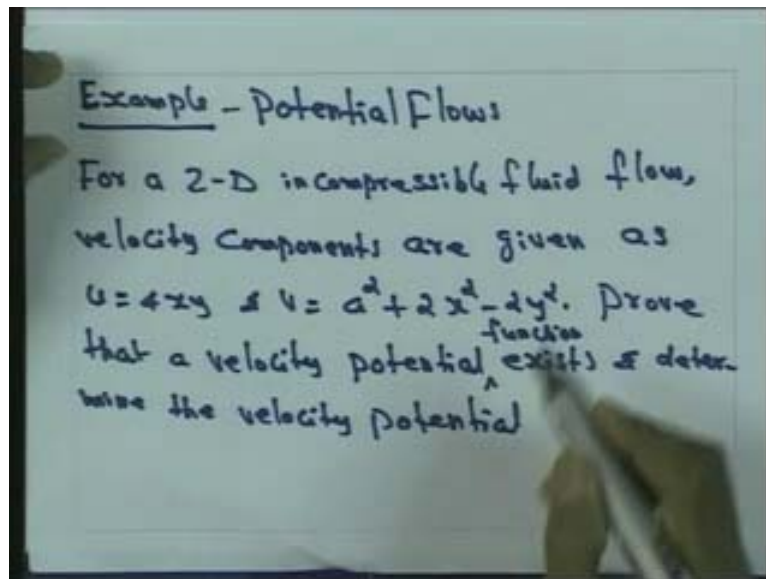 Example - Potential Flows
For a 2-D incompressible fluid flow,
velocity Components are given as
u = 4xy & v = a² + 2x² - 2y². Prove
that a velocity potential ^ function exists & deter-
mine the velocity potential